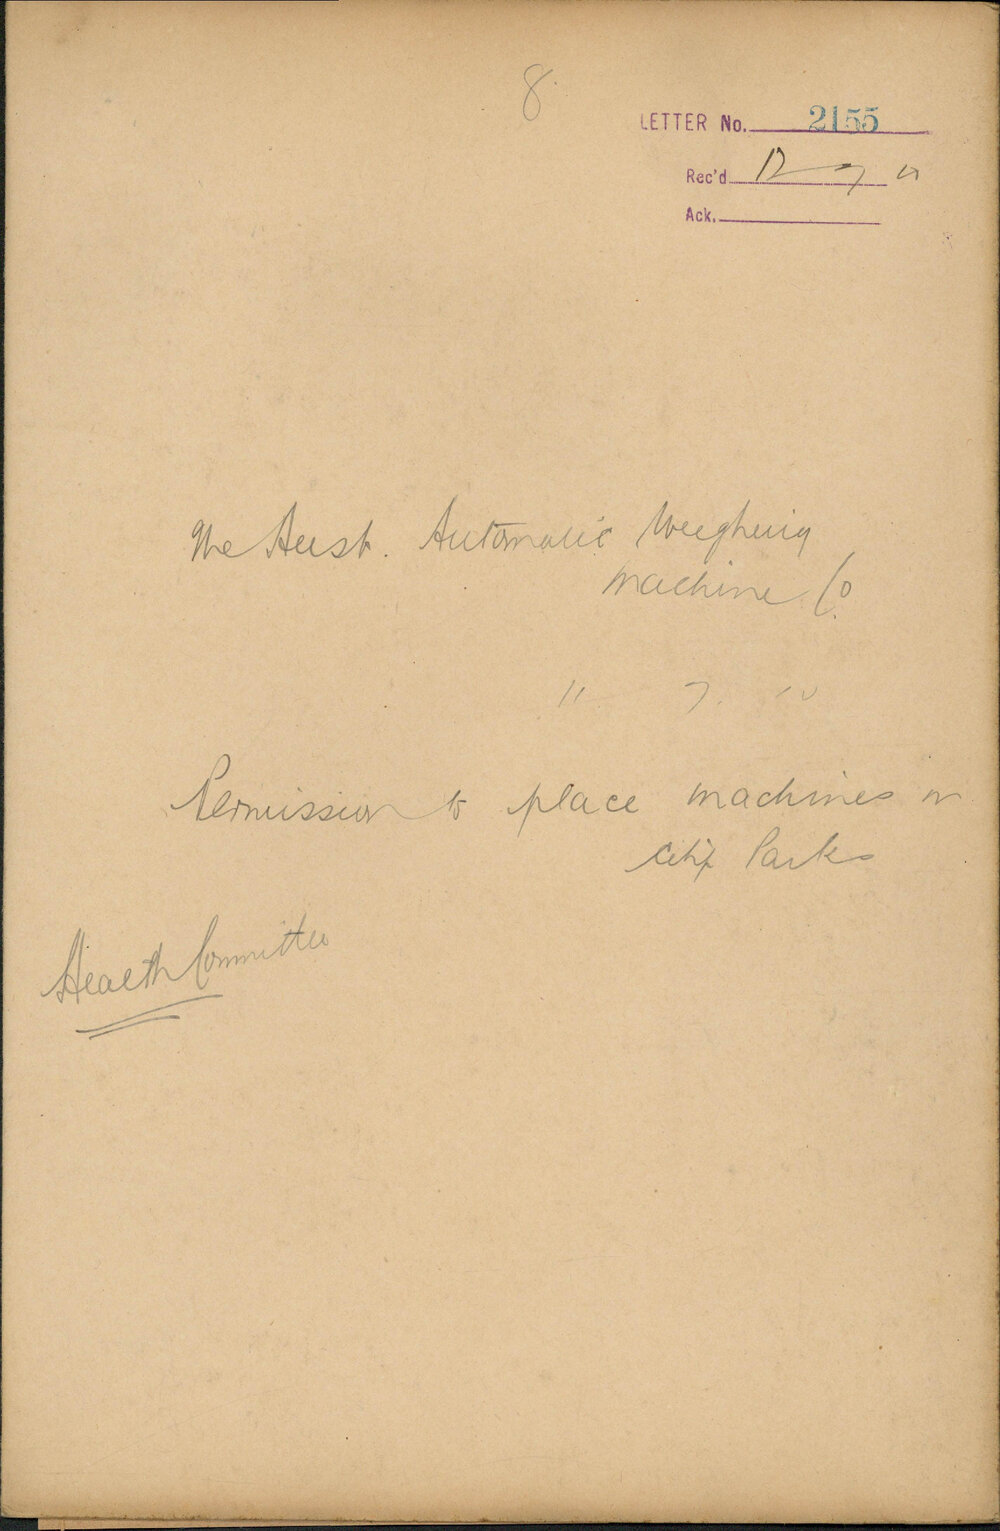 8
LETTER No. 2155
Rec'd 12 7
Ack.
The Aust. Automatic Weighing
Machine Co.
11 7.
Permission to place machines in
City Parks
Health Committee